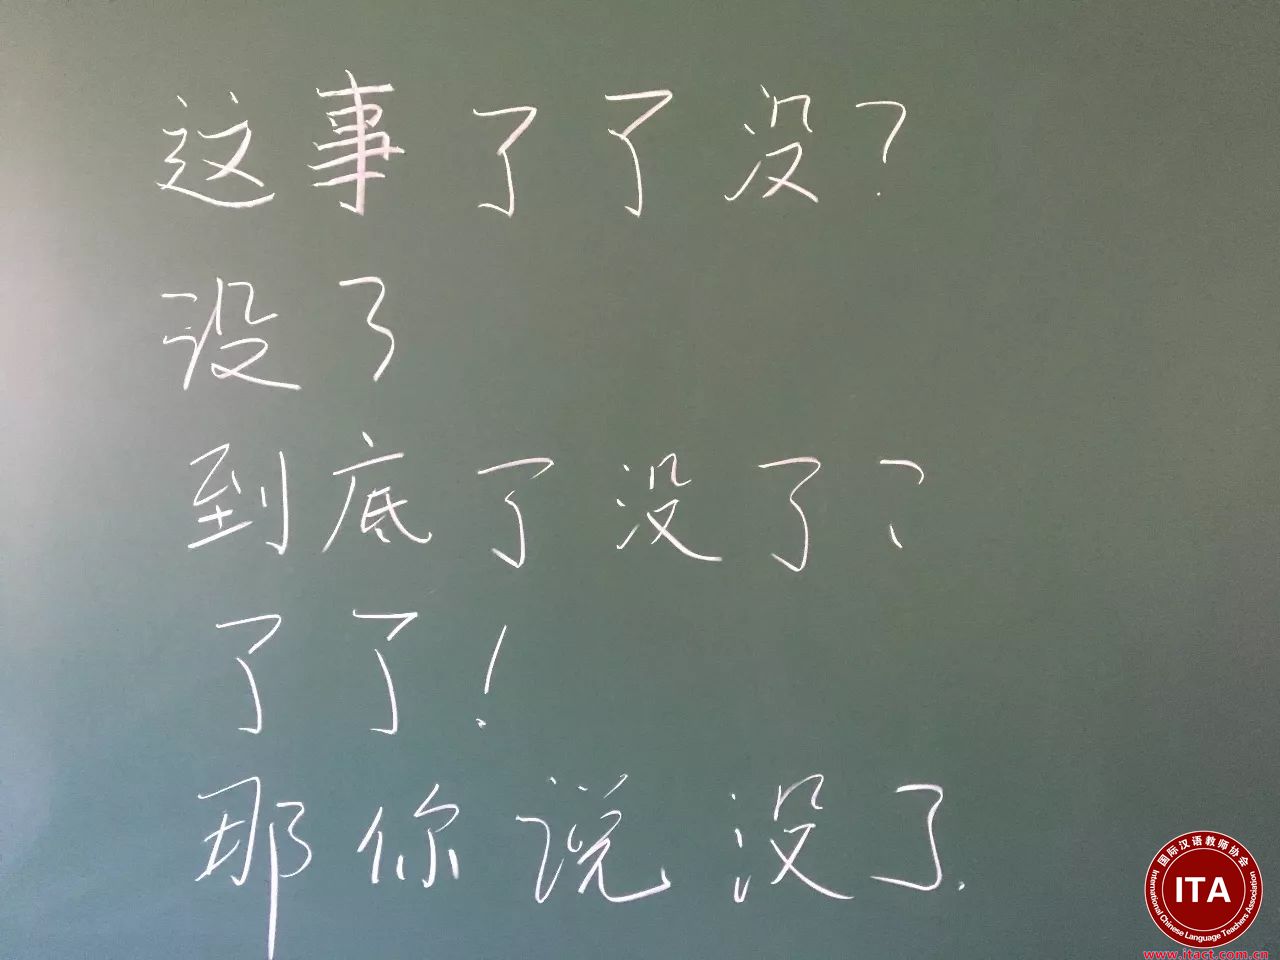 这事了了没?
没了
到底了没了?
了了!
那你说没了.
国际汉语教师协会
ITA
International Chinese Language Teachers Association
www.itact.com.cn